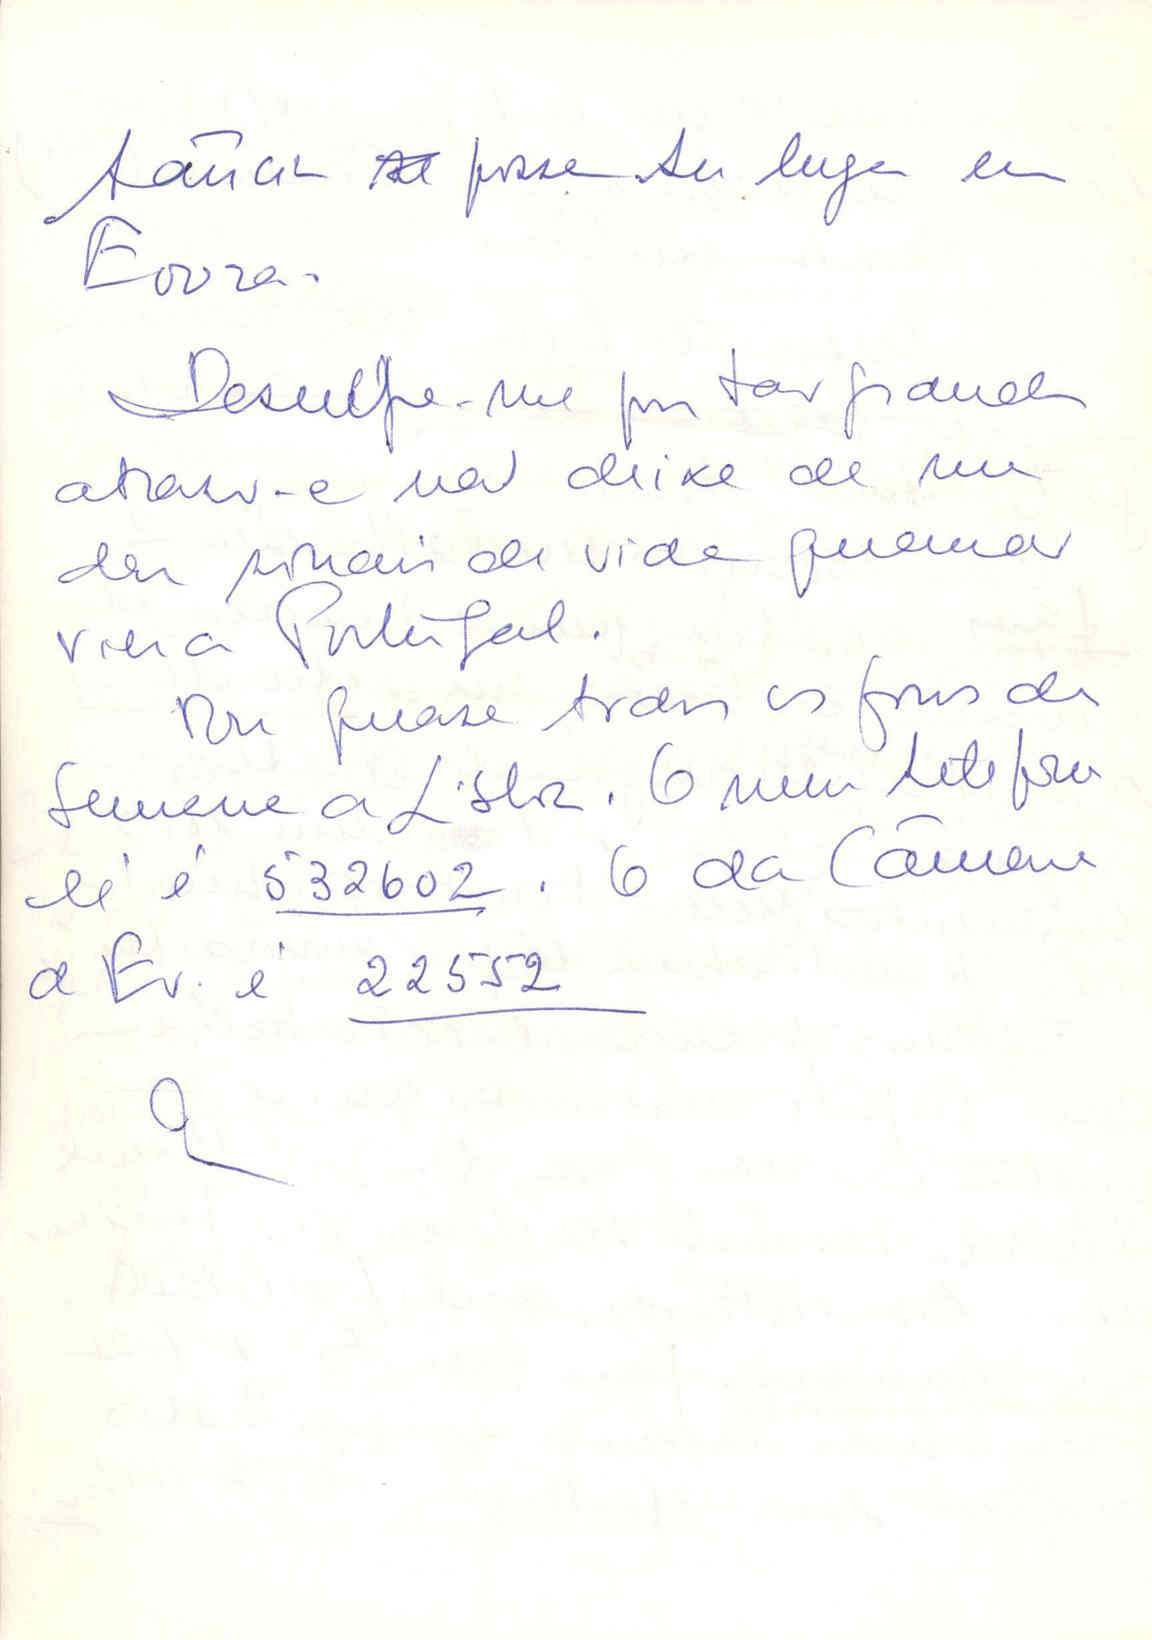 tância possa ter lugar em
Évora.
Desculpe-me por tão grande
atraso - e não deixe de me
dar sinais de vida quando
vier a Portugal.
Vou quase todos os fins de
semana a Lisboa. O meu telefone
lá é 532602. O da Câmara
d Ev. é 22552